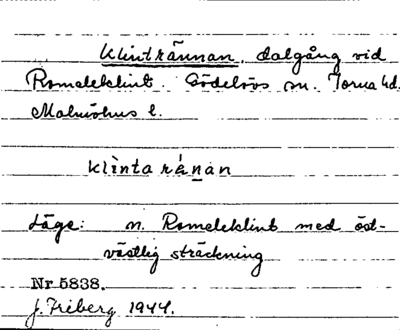 Klintrännan, dalgång vid
Romeleklint. Gödelövs sn. Torna hd.
Malmöhus l.
klìnta ránan
Läge: n. Romeleklint med öst-
västlig sträckning
Nr 5838.
J. Friberg 1944.